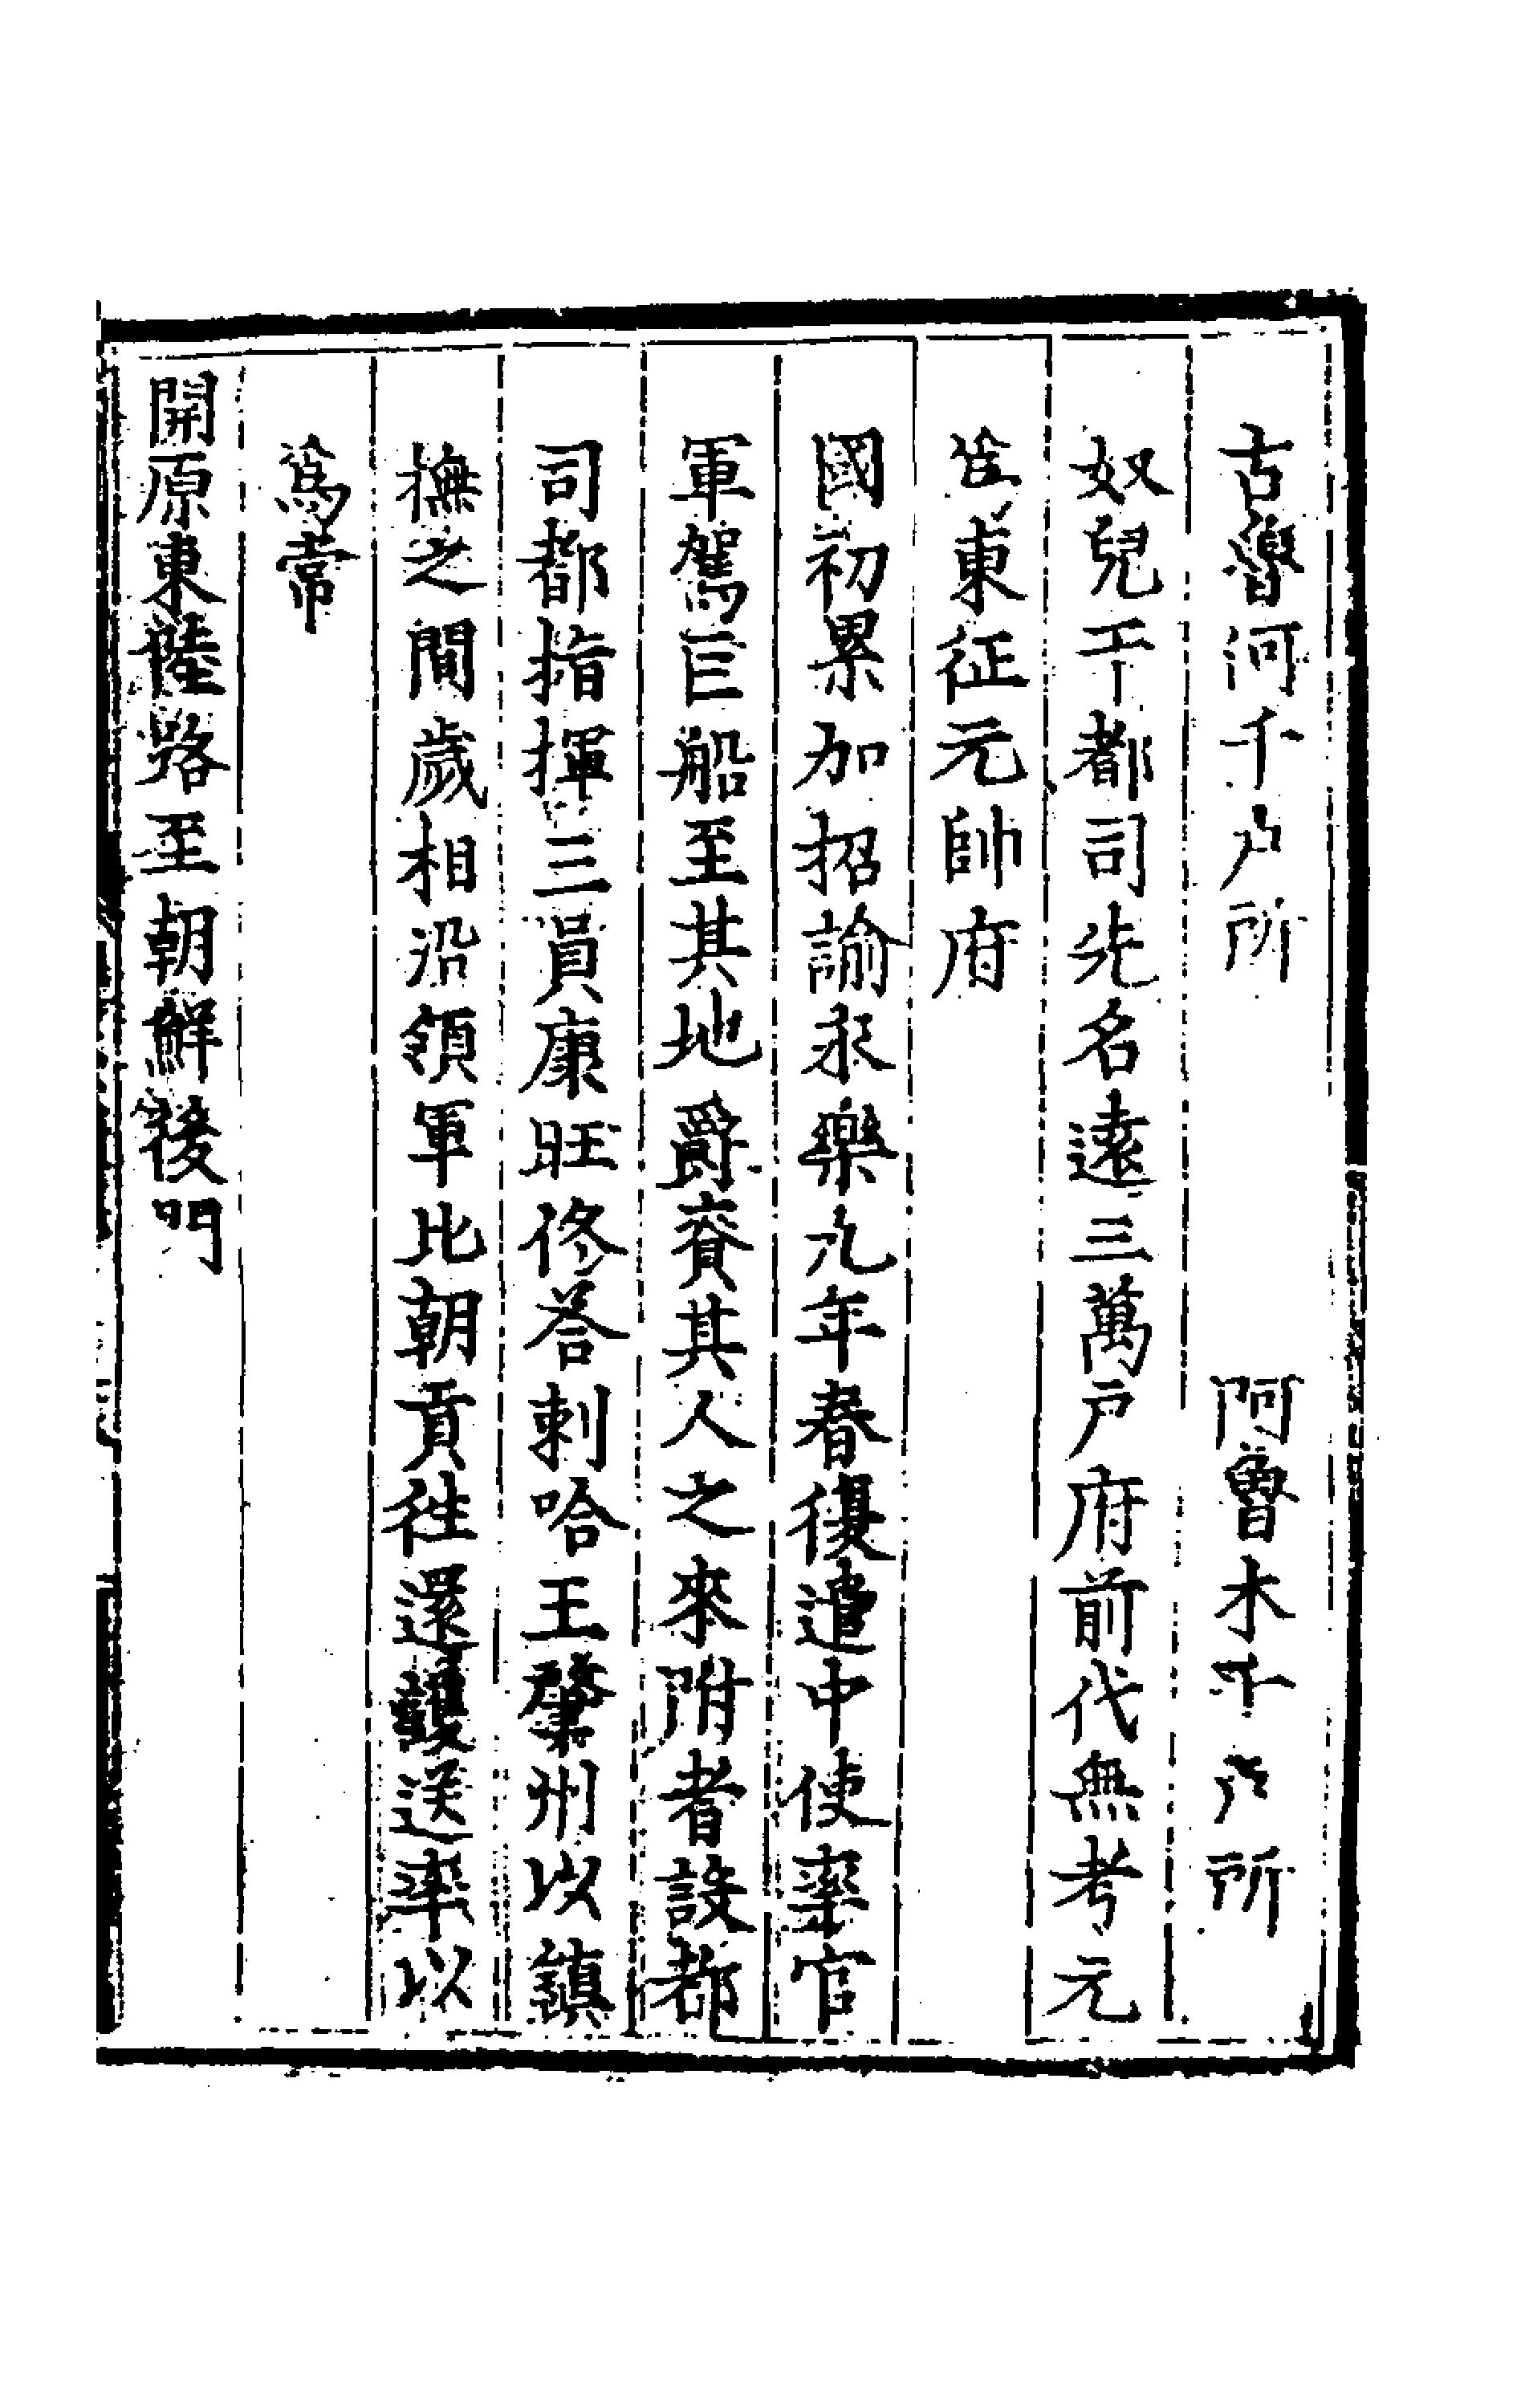 古魯河千户所　阿魯木千户所
奴兒干都司先名遠三萬戶府前代無考元
為東征元帥府
國初累加招諭永樂九年春復遣中使率官
軍駕巨船至其地爵賚其人之來附者設都
司都指揮三員康旺佟荅剌哈王肇州以鎮
撫之間歲相沿領軍比朝貢徃還護送率以
為常
開原東陸路至朝鮮後門